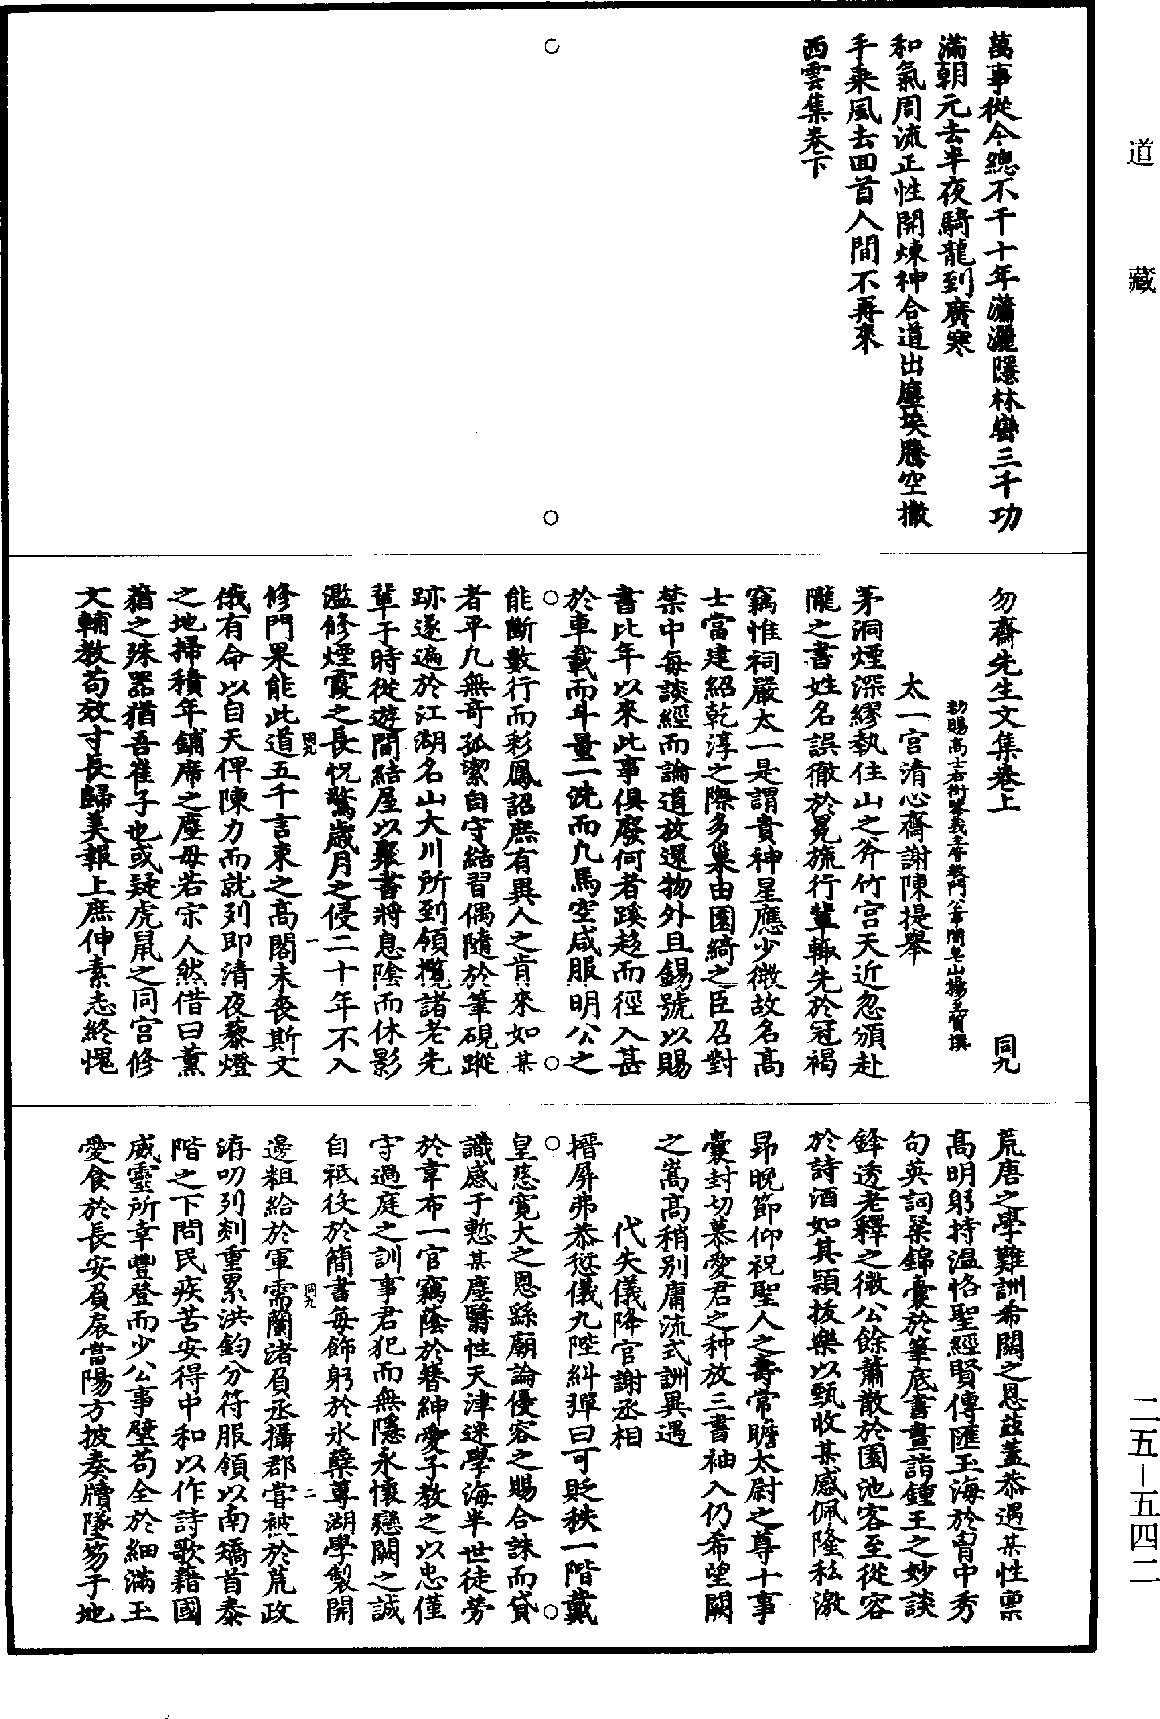 道藏
萬事從今總不干十年瀟灑隱林巒三千功
滿朝元去半夜騎龍到廣寒
和氣周流正性開煉神合道出塵埃騰空撒
手乘風去回首人間不再來
西雲集卷下
勿齋先生文集卷上 同九
太一宮清心齋謝陳提舉
茅洞煙深繆執住山之斧竹宮天近忽頒赴
隴之書姓名誤徹於冕旒行輩輒先於冠褐
竊惟祠嚴太一是謂貴神星應少微故名高
士當建紹乾淳之際多巢由園綺之臣召對
禁中每談經而論道放還物外且錫號以賜
書比年以來此事俱廢何者蹊趍而徑入甚
於車載而斗量一洗而凡馬空咸服明公之
能斷數行而彩鳳詔庶有異人之肯來如某
者平凡無奇孤潔自守結習偶隨於筆硯蹤
跡遂遍於江湖名山大川所到領攬諸老先
輩于時從遊間結屋以聚書將息陰而休影
濫修煙霞之長怳驚歲月之侵二十年不入
修門果能此道五千言束之高閣未喪斯文
俄有命以自天俾陳力而就列即清夜藜燈
之地掃積年鋪席之塵毋若宋人然借曰薰
蕕之殊器猶吾崔子也或疑虎鼠之同宮修
文輔教苟效寸長歸美報上庶伸素志終愧
荒唐之學難訓希闊之恩茲蓋恭遇某性稟
高明躬持溫恪聖經賢傳匯玉海於胷中秀
句英詞粲錦囊於筆底書畫詣鍾王之妙談
鋒透老釋之微公餘蕭散於園池客至從容
於詩酒如其穎拔樂以甄收某感佩隆私激
昂晚節仰祝聖人之壽常瞻太尉之尊十事
囊封切慕愛君之种放三書袖入仍希望闕
之嵩高稍別庸流式詶異遇
代失儀降官謝丞相
搢屏弗恭愆儀九陛糾彈曰可貶秩一階戴
皇慈寬大之恩繇廟論優容之賜合誅而貸
識感于慙某塵翳性天津迷學海半世徒勞
於韋布一官竊蔭於簪紳愛子教之以忠僅
守過庭之訓事君犯而無隱永懷戀闕之誠
自祗役於簡書每飾躬於氷蘗蓴湖學製開
邊粗給於軍需蘭渚負丞攝郡嘗裨於荒政
洊叨列剡重累洪鈞分符服領以南矯首泰
階之下問民疾苦安得中和以作詩歌藉國
威靈所幸豐登而少公事璧苟全於細滿玉
愛食於長安負扆當陽方披奏牘墜笏于地
同九
一
同九
二
二五—五四二